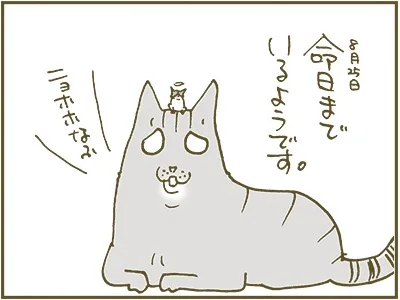 8月25日
命日まで
いるようです。
ニョホホなふ